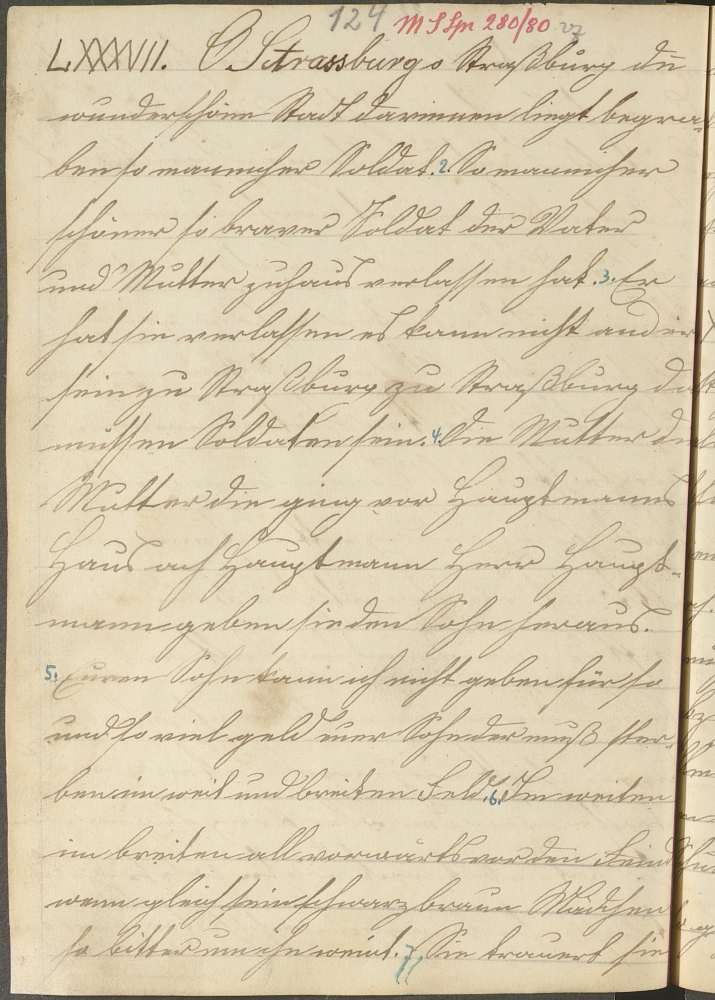 124 M S Spr 280/80 27
LXXXVII. O Strassburg o Straßburg du
wunderschöne Stadt darinnen liegt begra-
ben so mannicher Soldat. 2. So mannicher
schöner so braver Soldat der Vater
und Mutter zuhaus verlassen hat. 3. Er
hat sie verlassen es kann nicht anders
sein zu Straßburg zu Straßburg da
müssen Soldaten sein. 4. Die Mutter die
Mutter die ging vor Hauptmanns
Haus ach Hauptmann Herr Haupt-
mann geben sie den Sohn heraus.
5. Euren Sohn kann ich nicht geben für so
und so viel geld euer Sohn der muß ster-
ben im weit und breiten Feld. 6. Im weiten
im breiten all vorwärts vor den Feind
wenn gleich sein schwarzbraun Mädchen
so bitter um ihn weint. 7. Sie trauert sie